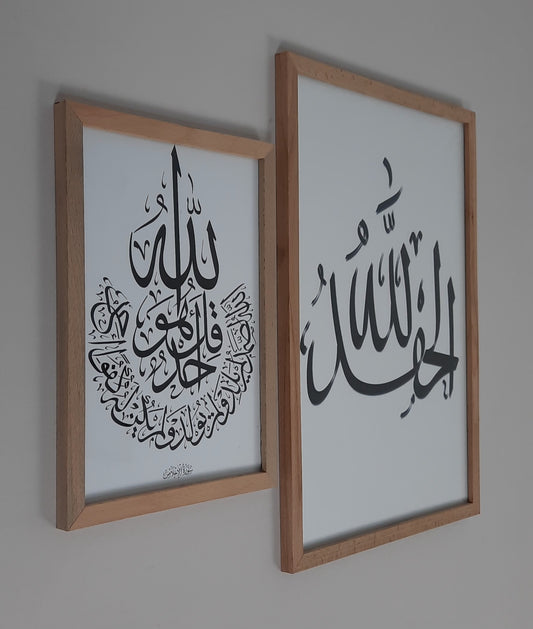 الحمد لله
قل هو الله أحد
الله الصمد لم يلد ولم يولد ولم يكن له كفوا أحد
سورة الإخلاص